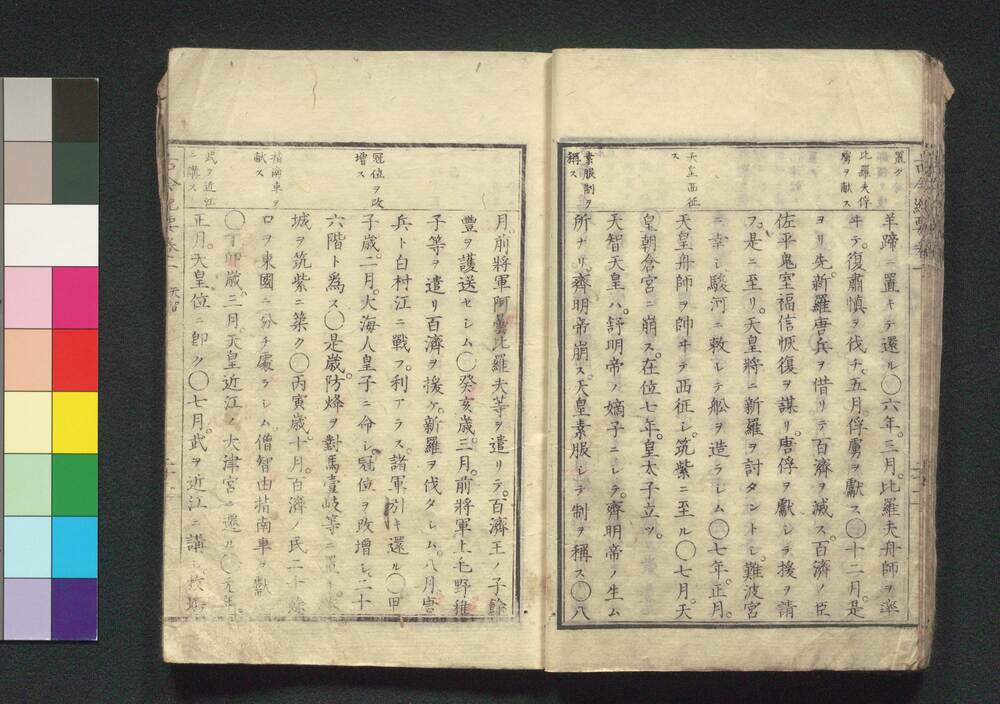 置ク
比羅夫俘
虜ヲ献ス
天皇西征
ス
素服制ヲ
稱ス
羊蹄ニ置キテ還ル〇六年三月。比羅夫舟師ヲ率
ヰテ。復肅慎ヲ伐チ。五月俘虜ヲ獻ス〇十二月。是
ヨリ先。新羅唐兵ヲ借リテ百濟ヲ滅ス。百濟ノ臣
佐平鬼室福信恢復ヲ謀リ。唐俘ヲ獻シテ援ヲ請
フ。是ニ至リ。天皇將ニ新羅ヲ討タントシ。難波宮
ニ幸シ。駿河ニ敕シテ舩ヲ造ラシム〇七年。正月。
天皇舟師ヲ帥ヰテ西征シ。筑紫ニ至ル〇七月。天
皇朝倉宮ニ崩ス。在位七年。皇太子立ツ。
天智天皇ハ。舒明帝ノ嫡子ニシテ。齊明帝ノ生ム
所ナリ。齊明帝崩ス。天皇素服シテ制ヲ稱ス〇八
冠位ヲ改
增ス
指南車ヲ
献ス
武ヲ近江
ニ講ス
月。前將軍阿曇比羅夫等ヲ遣リテ。百濟王ノ子餘
豐ヲ護送セシム〇癸亥歳。三月。前將軍上毛野稚
子等ヲ遣リ百濟ヲ援ケ。新羅ヲ伐タシム。八月。唐
兵ト白村江ニ戰フ。利アラス。諸軍引キ還ル〇甲
子歳。二月。大海人皇子ニ命シ。冠位ヲ改增シ。二十
六階ト爲ス〇是歳。防烽ヲ對馬壹岐等ニ置
城ヲ筑紫ニ築ク〇丙寅歳。十月。百濟ノ民二十餘
口ヲ東國ニ分チ處ラシム。僧智由指南車ヲ獻
〇丁卯歳。三月。天皇近江ノ大津宮ニ還ル〇元年。
正月。天皇位ニ卽ク〇七月。武ヲ近江ニ講シ。牧場